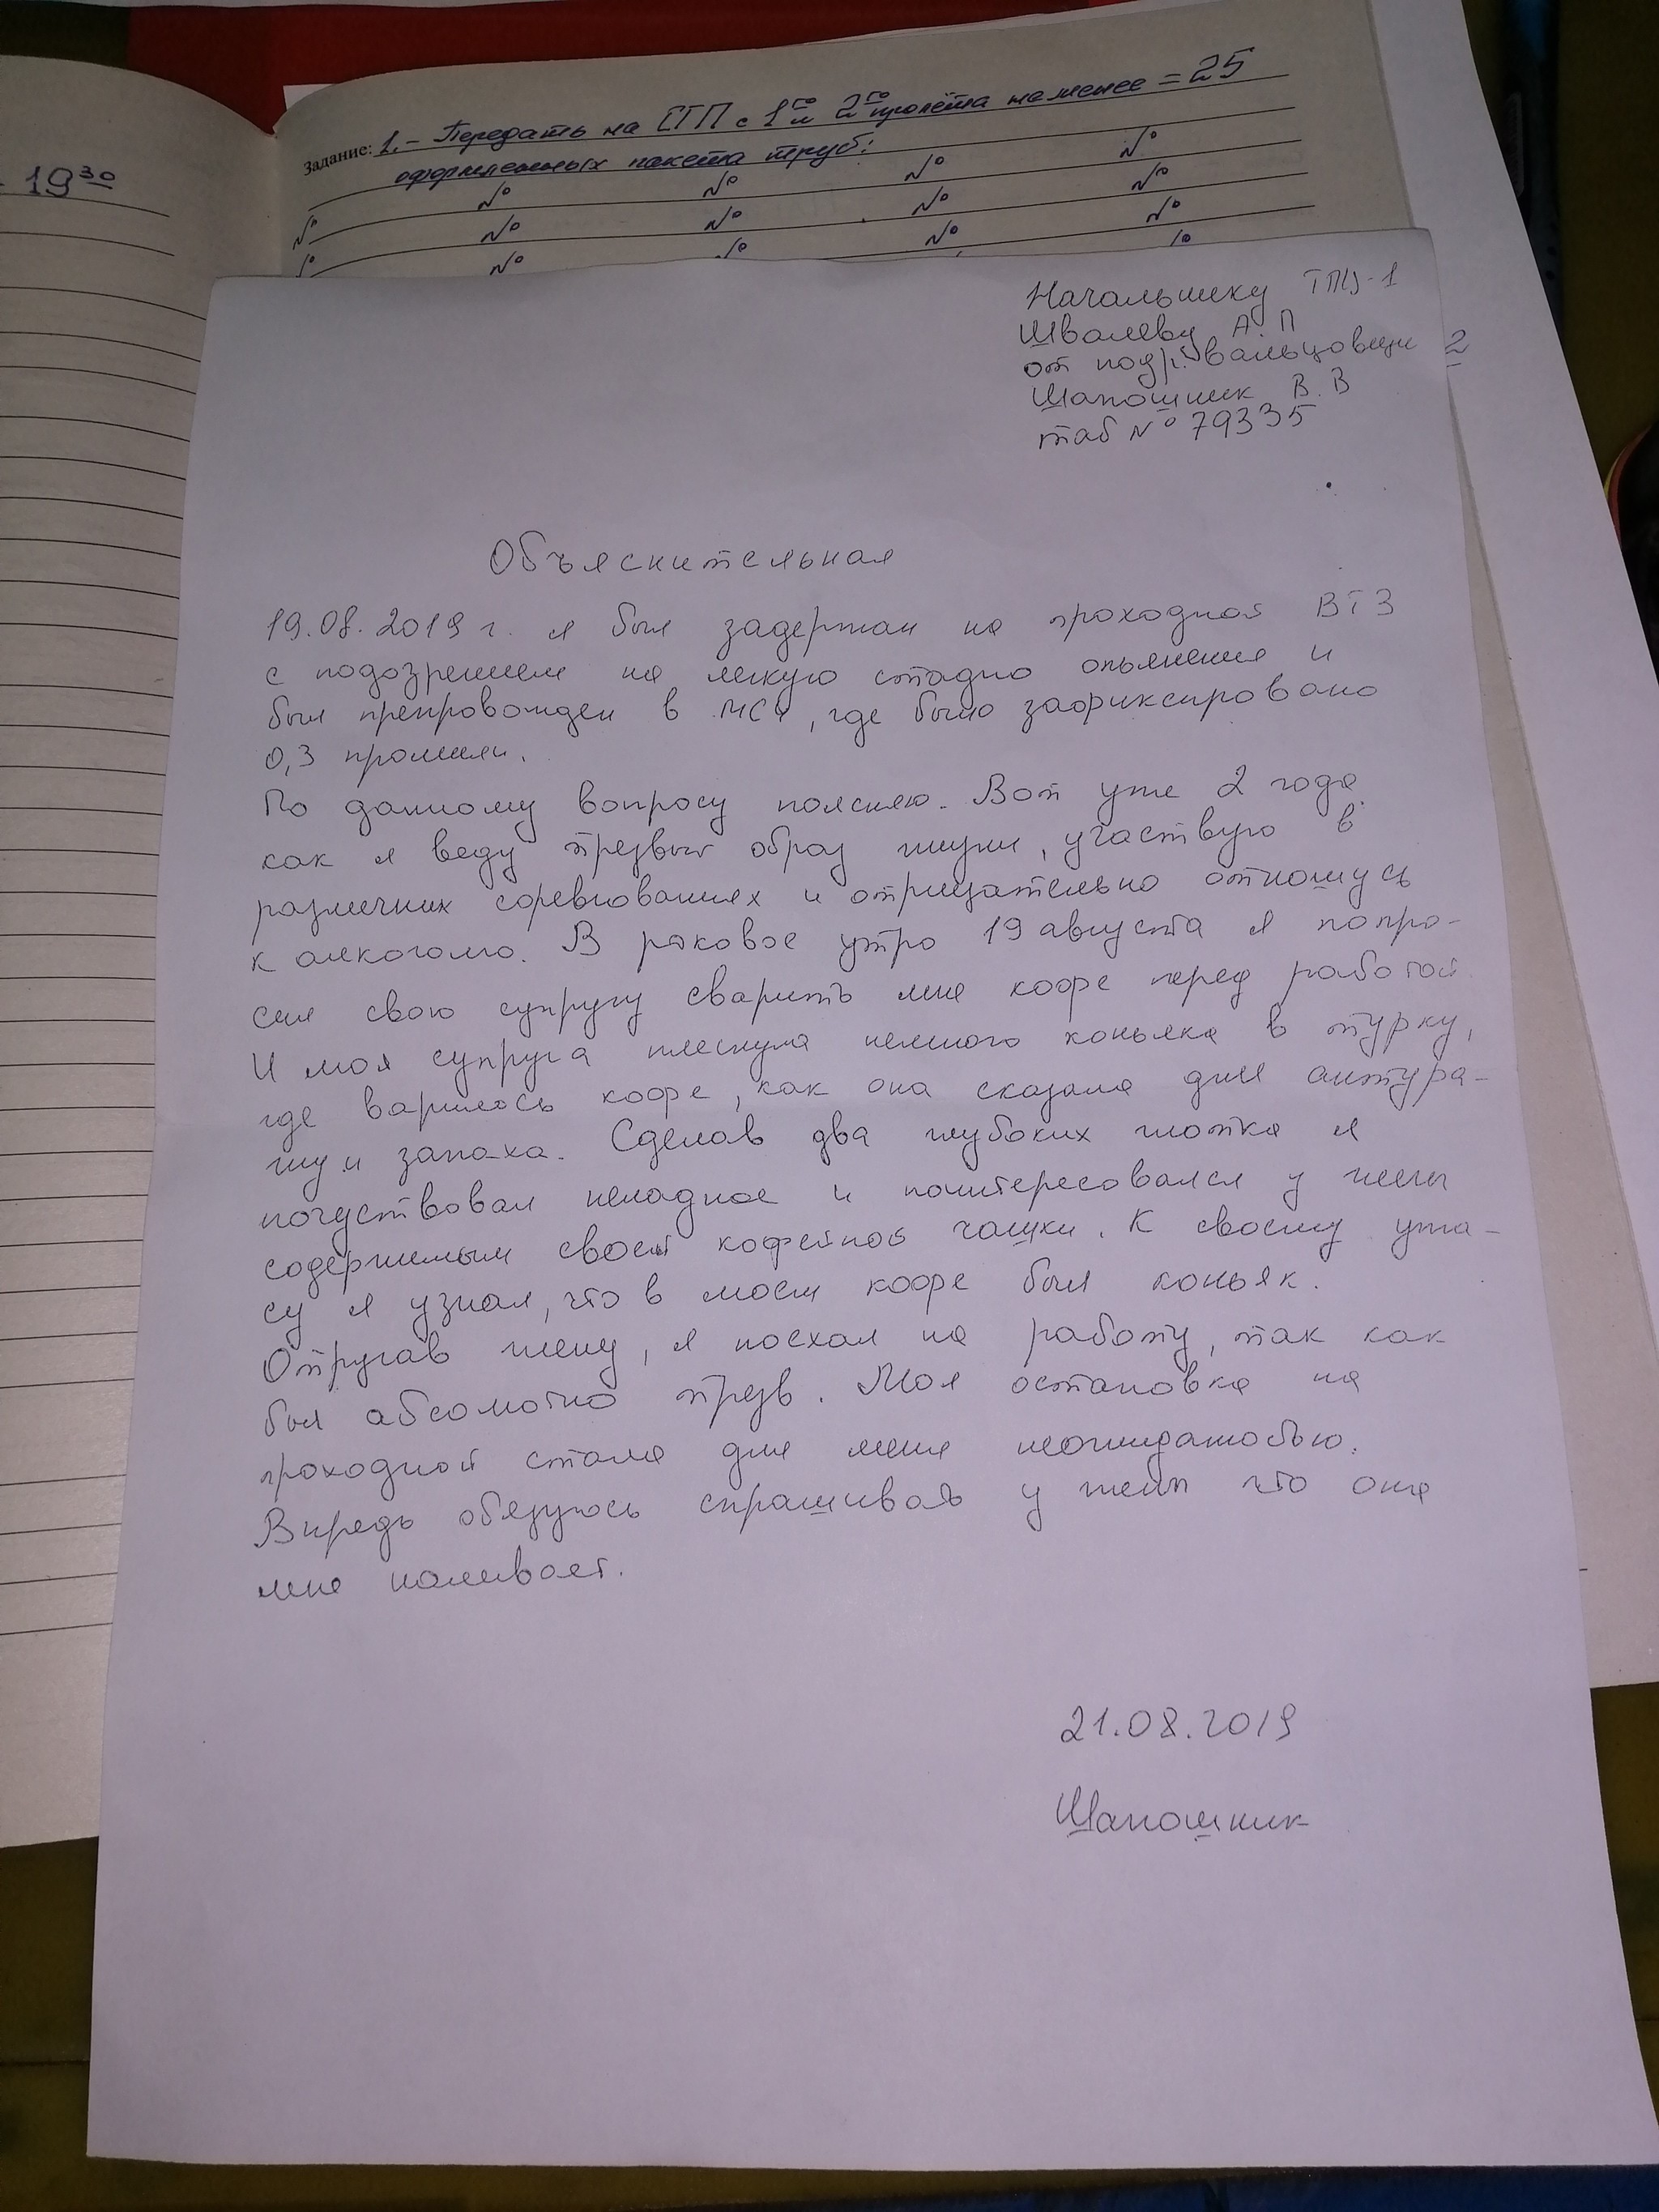 19³⁰
Задание: 1.– Передать на СТП с 1го и 2го пролёта не менее = 25
оформленных пакета труб:
№ № № №
№ № № № №
№ № № № №
2
Начальнику ТПЦ-1
Швалеву А. П
от подр. вальцовщи
Шапошник В. В
таб № 79335
Объяснительная
19.08.2019 г. я был задержан на проходной ВТЗ
с подозрением на легкую стадию опьянения и
был препровожден в МСЧ, где было зафиксировано
0,3 промилли.
По данному вопросу поясняю. Вот уже 2 года
как я веду трезвый образ жизни, участвую в
различных соревнованиях и отрицательно отношусь
к алкоголю. В роковое утро 19 августа я попро-
сил свою супругу сварить мне кофе перед работой.
И моя супруга плеснула немного коньяка в турку,
где варилось кофе, как она сказала для антура-
жу и запаха. Сделав два глубоких глотка я
почуствовал неладное и поинтересовался у жены
содержимым своей кофейной чашки. К своему ужа-
су я узнал, что в моем кофе был коньяк.
Отругав жену, я поехал на работу, так как
был абсолютно трезв. Моя остановка на
проходной стала для меня неожиданостью.
Впредь обязуюсь спрашивать у жены что она
мне наливает.
21.08.2019
Шапошник